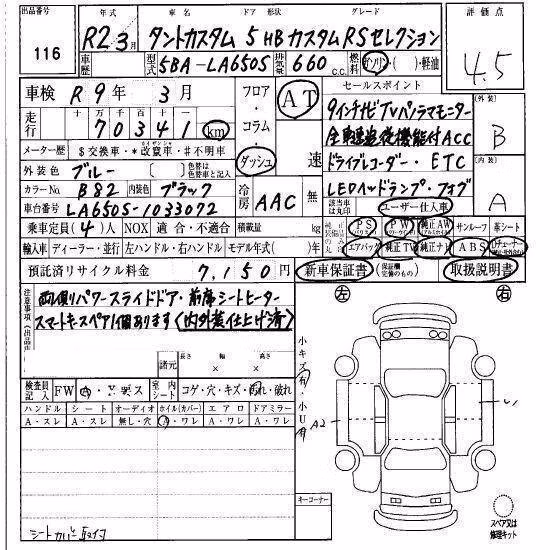 出品番号 年式 車名 ドア 形状 グレード 評価点
116 R2 3月 タントカスタム 5 HB カスタムRSセレクション 4.5
車歴 型式 5BA-LA650S 排気量 660 c.c. 燃料 ガソリン ・軽油
車検 R9年 3月 フロア・コラム・ダッシュ AT 速 セールスポイント
走行 十万 万 千 百 十 一
70341 km
9インチナビTVパノラマモニター
全車速追従機能付ACC
メーター歴 $交換車・*改竄車・#不明車
ドライブレコーダー・ETC
外装色 ブルー 色替は色替車と記入
LEDヘッドランプ・フォグ
外装 B
内装 A
カラーNo. B82 内装色 ブラック 冷房 AAC 無
該当車は丸印 ユーザー仕入車
車台番号 LA650S-1033072
乗車定員(4)人 NOX 適合・不適合 積載量 kg
PS PW 純正AW サンルーフ 革シート
輸入車 ディーラー・並行 左ハンドル・右ハンドル モデル年式( )年
エアバック 純正TV 純正ナビ ABS
預託済リサイクル料金 7,150円
新車保証書 (保証書 完備のもの) 取扱説明書
注意事項
両側パワースライドドア・前席シートヒーター
スマートキースペア1個あります(内外装仕上げ済)
左 右
諸元 長さ × 幅 × 高さ
小キズ有・小U有
検査員記入 FW 室内シート コゲ・穴・キズ・汚れ・破れ
ハンドル シート オーディオ ホイル(カバー) エアロ ドアミラー
A・スレ A・スレ 無し・穴 A・ワレ A・ワレ A・ワレ
A2
キーコーナー
スペア又は
修理キット